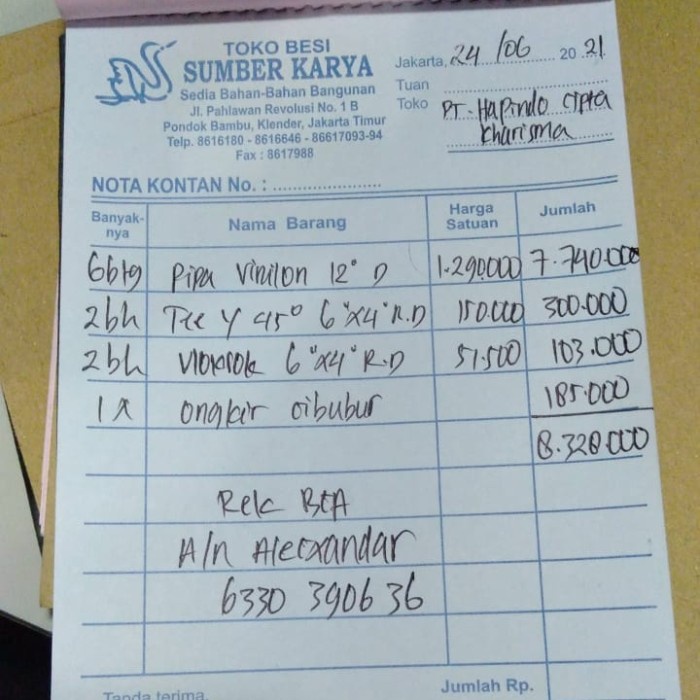 TOKO BESI
SUMBER KARYA
Sedia Bahan-Bahan Bangunan
Jl. Pahlawan Revolusi No. 1 B
Pondok Bambu, Klender, Jakarta Timur
Telp. 8616180 - 8616646 - 86617093-94
Fax : 8617988
Jakarta, 24 /06 20 21
Tuan
Toko PT. Hapindo Cipta
Kharisma
NOTA KONTAN No. :
Banyak-nya Nama Barang Harga Satuan Jumlah
6btg Pipa Vinilon 12" D 1.290.000 7.740.000
2bh Tee Y 45° 6"x4" R.D 150.000 300.000
2bh Vloksok 6"x4" R.D 51.500 103.000
1x ongkir cibubur 185.000
8.328.000
Rek BCA
A/n Alecxandar
6330 3906 36
Tanda terima,
Jumlah Rp.